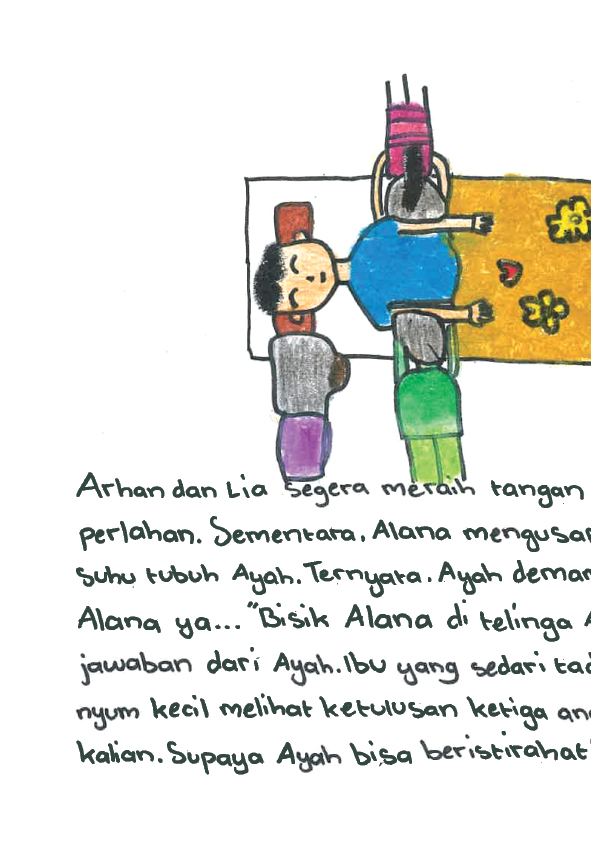 Arhan dan Lia segera meraih tangan
perlahan. Sementara, Alana mengusap
suhu tubuh Ayah. Ternyata, Ayah demam
Alana ya..." Bisik Alana di telinga
jawaban dari Ayah. Ibu yang sedari
nyum kecil melihat ketulusan ketiga
kalian. Supaya Ayah bisa beristirahat"